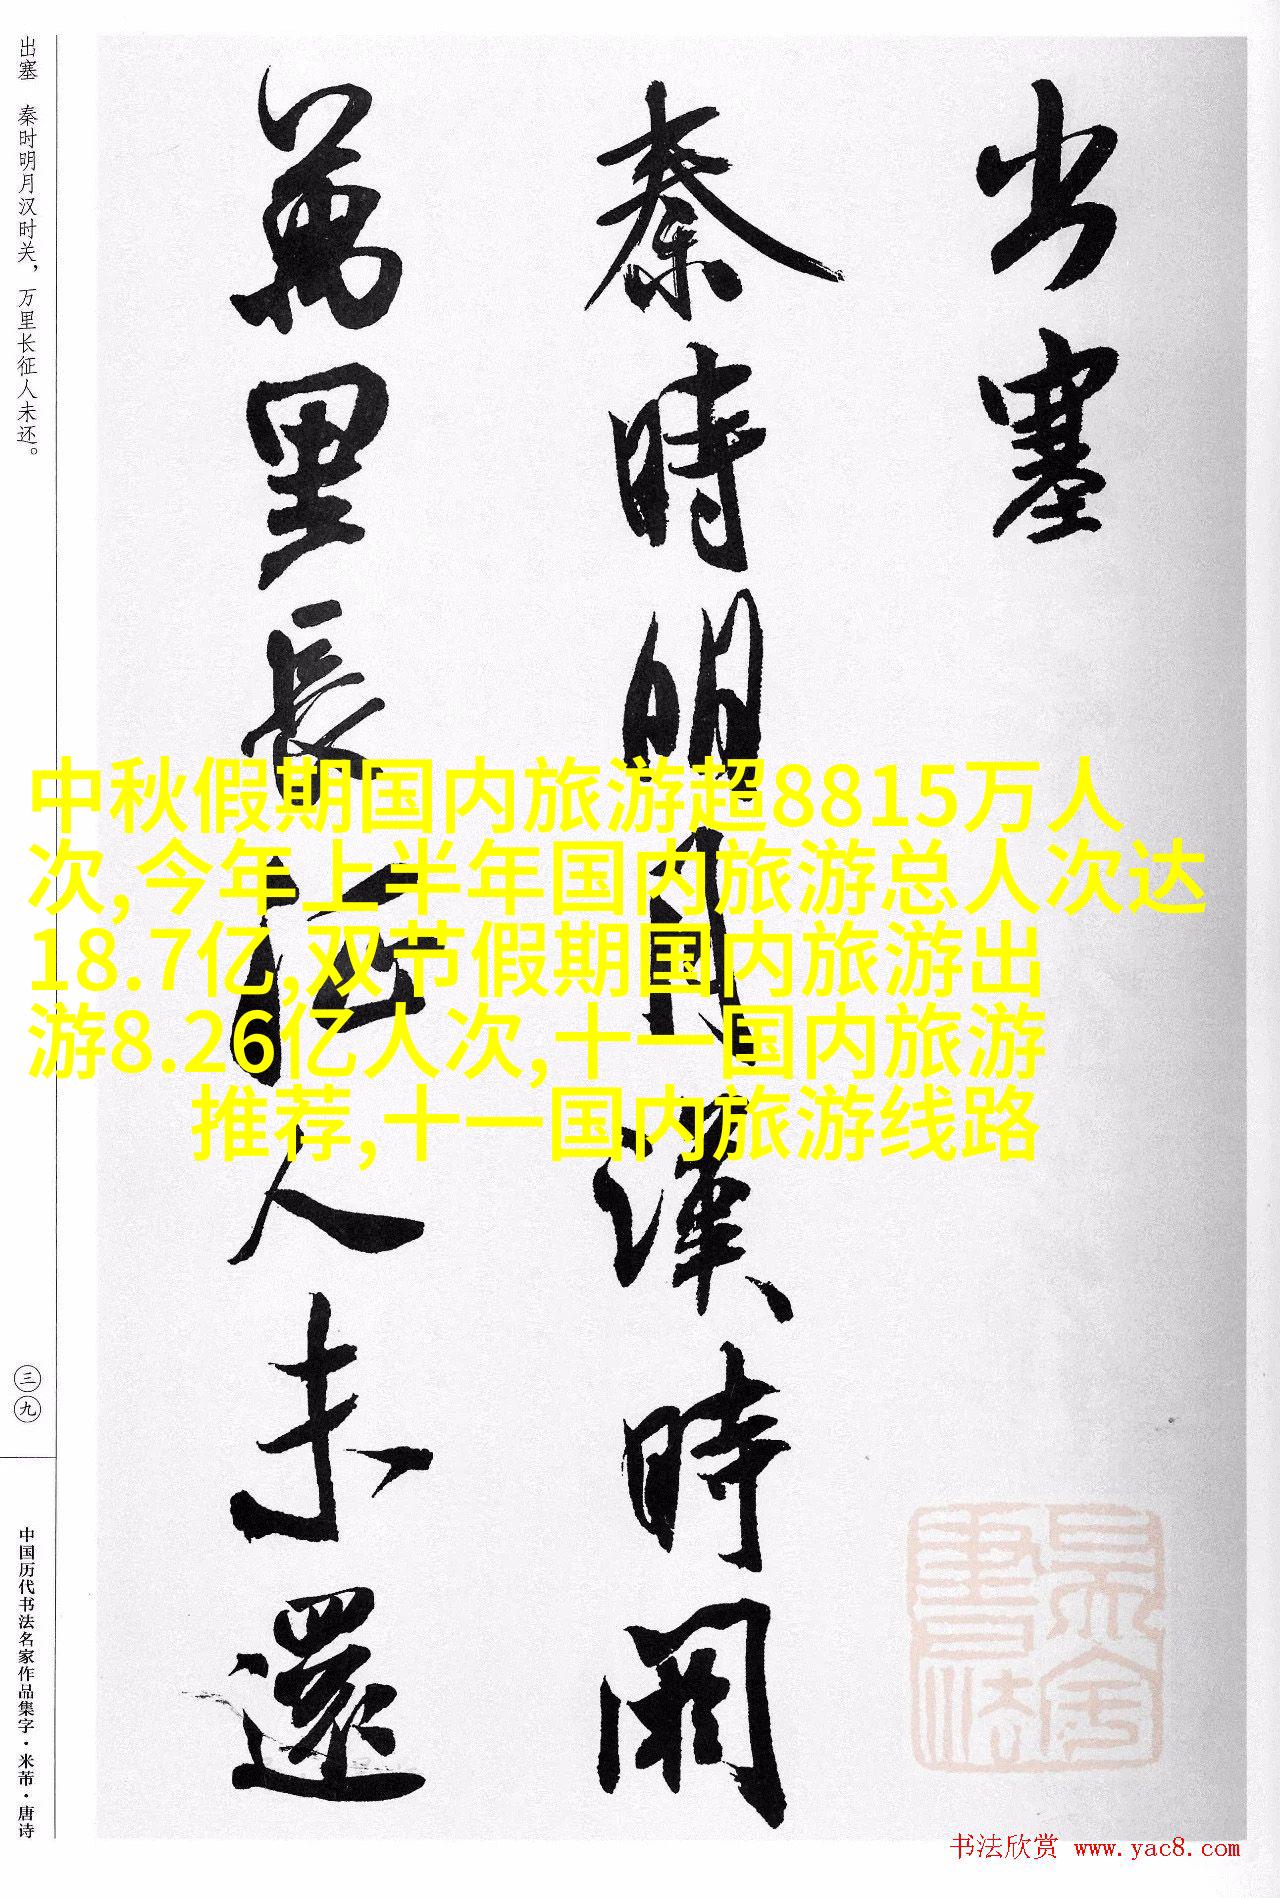 出塞
秦時明月漢時関
萬里長征人未還
出塞 秦时明月汉时关，万里长征人未还。
三九
中国历代书法名家作品集字·米芾·唐诗
中秋假期国内旅游超8815万人
次,今年上半年国内旅游总人次达
18.7亿,双节假期国内旅游出
游8.26亿人次,十一国内旅游
推荐,十一国内旅游线路
书法欣赏 www.yac8.com